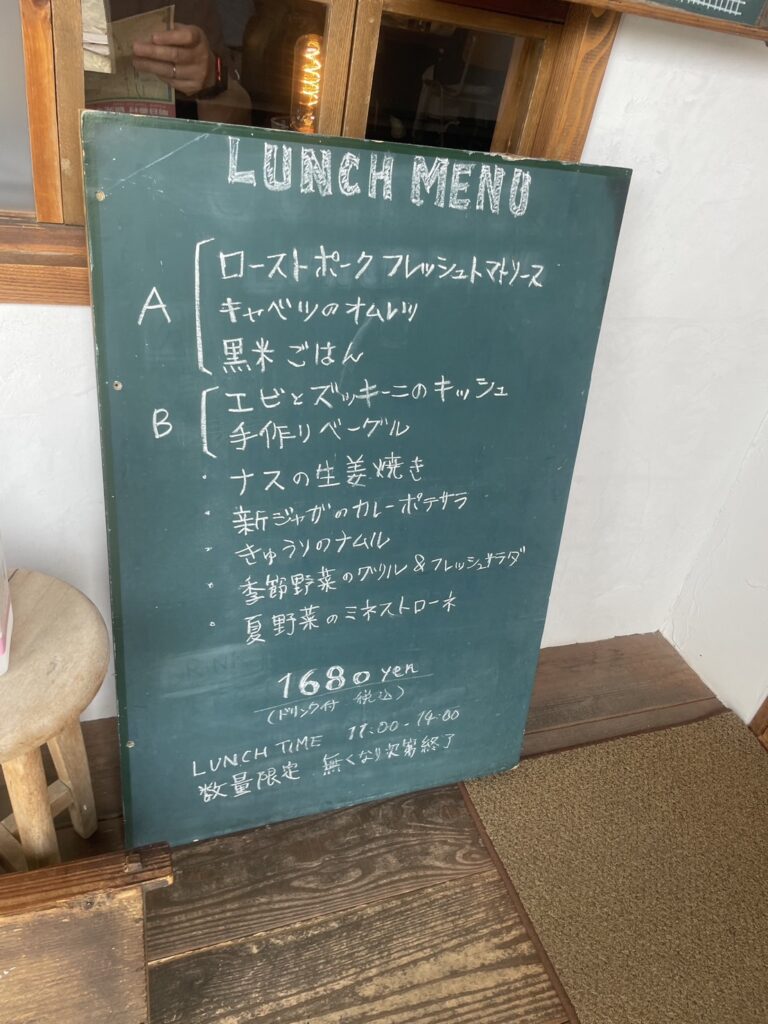 LUNCH MENU
A
ローストポーク フレッシュトマトソース
キャベツのオムレツ
黒米 ごはん
B
エビとズッキーニのキッシュ
手作りベーグル
・ナスの生姜焼き
・新ジャガのカレーポテサラ
・きゅうりのナムル
・季節野菜のグリル&フレッシュサラダ
・夏野菜のミネストローネ
1680 yen
(ドリンク付 税込)
LUNCH TIME 11:00-14:00
数量限定 無くなり次第終了